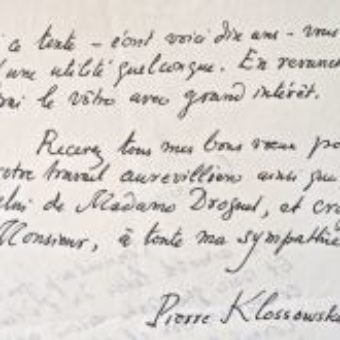 ce texte – écrit voici dix ans – vous
d'une utilité quelconque. En revanch
rai le vôtre avec grand intérêt.
Recevez tous mes bons vœux po
votre travail aurevillien ainsi que
celui de Madame Droguet, et cro
Monsieur, à toute ma sympathie
Pierre Klossowski